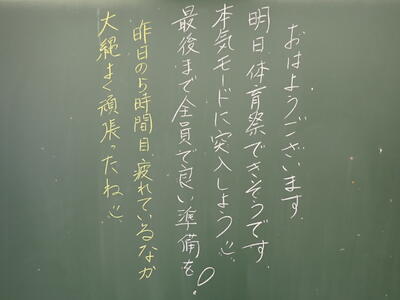 おはようございます
明日体育祭できそうです
本気モードに突入しよう
最後まで全員で良い準備を!
昨日の5時間目疲れているなか
大縄よく頑張ったね